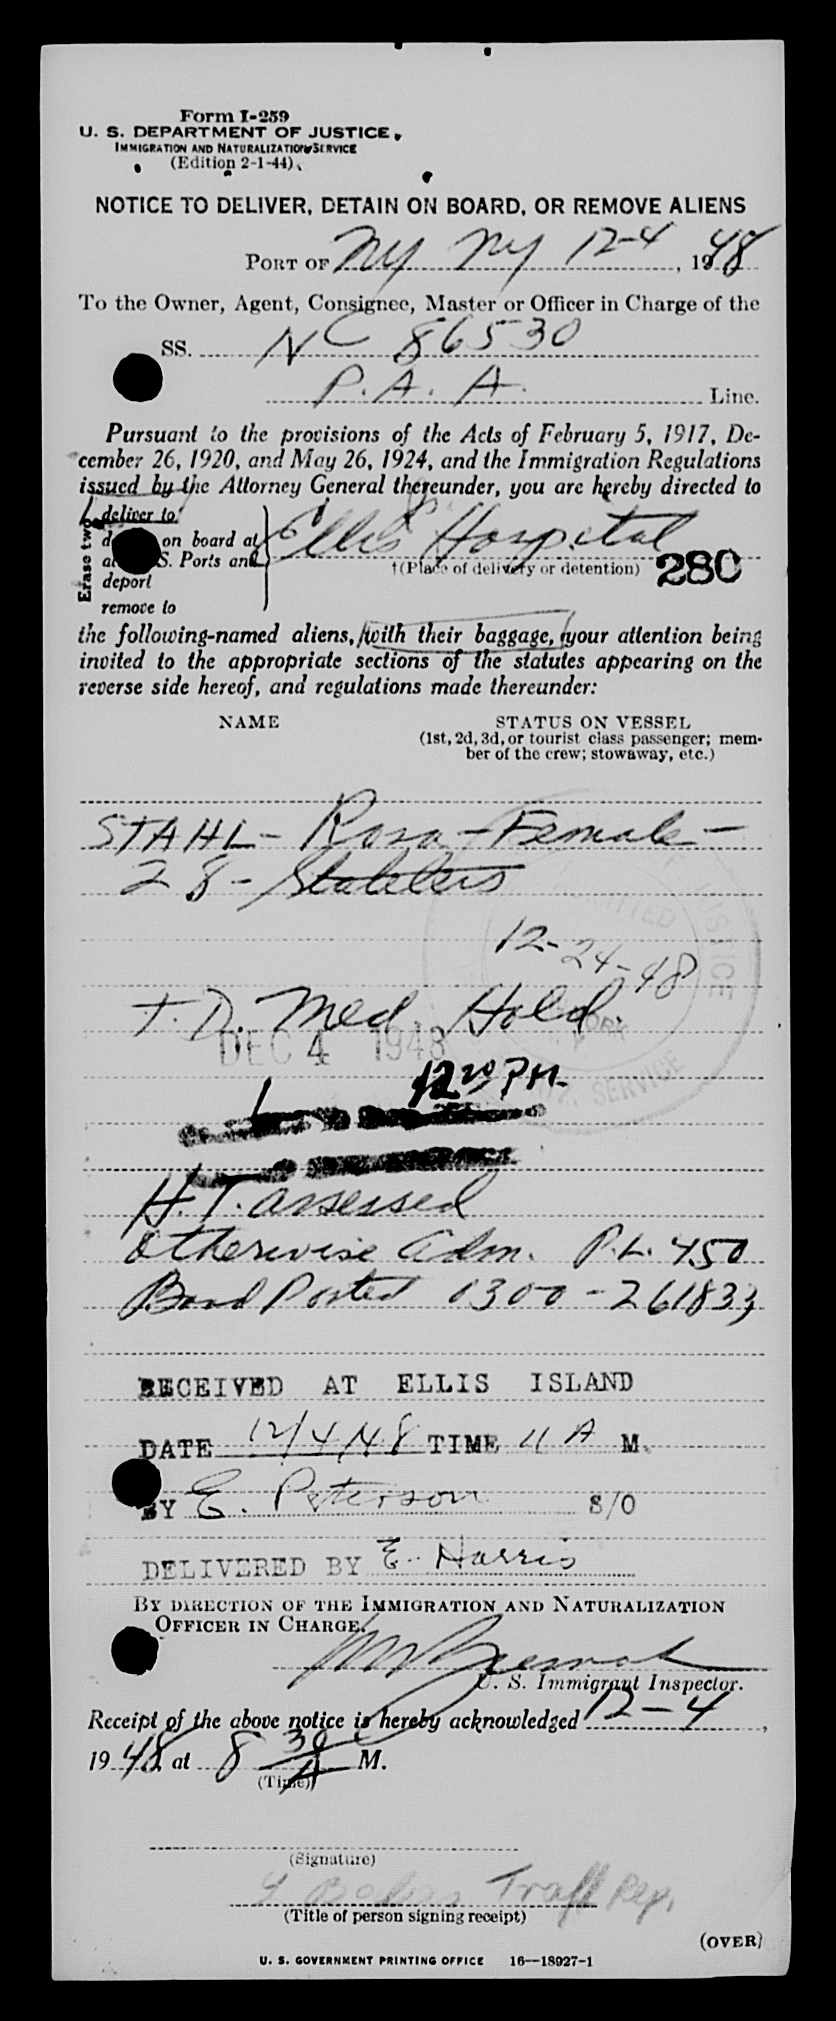 Form I-259
U. S. DEPARTMENT OF JUSTICE
IMMIGRATION AND NATURALIZATION SERVICE
(Edition 2-1-44)
NOTICE TO DELIVER, DETAIN ON BOARD, OR REMOVE ALIENS
PORT OF NY NY 12-4, 1948
To the Owner, Agent, Consignee, Master or Officer in Charge of the
SS. NC 86530
P. A. A. Line.
Pursuant to the provisions of the Acts of February 5, 1917, De-
cember 26, 1920, and May 26, 1924, and the Immigration Regulations
issued by the Attorney General thereunder, you are hereby directed to
Erase two
deliver to
on board at
S. Ports and
deport
remove to
Ellis Hospital
†(Place of delivery or detention) 280
the following-named aliens, with their baggage, your attention being
invited to the appropriate sections of the statutes appearing on the
reverse side hereof, and regulations made thereunder:
NAME STATUS ON VESSEL
(1st, 2d, 3d, or tourist class passenger; mem-
ber of the crew; stowaway, etc.)
STAHL - Rosa - Female -
28 - Stateless
12-24-48
T. D. Med. Hold.
DEC 4 1948
12 20 PM
H. T. assessed
Otherwise Adm. P.L. 450
Bond Posted 0300-261833
RECEIVED AT ELLIS ISLAND
DATE 12/4/48 TIME 11 A M.
BY E. Peterson S/O
DELIVERED BY E. Harris
BY DIRECTION OF THE IMMIGRATION AND NATURALIZATION
OFFICER IN CHARGE.
U. S. Immigrant Inspector.
Receipt of the above notice is hereby acknowledged 12-4,
1948, at 8 30 A M.
(Time)
(Signature)
Traff Rep.
(Title of person signing receipt)
(OVER)
U. S. GOVERNMENT PRINTING OFFICE 16—18927-1